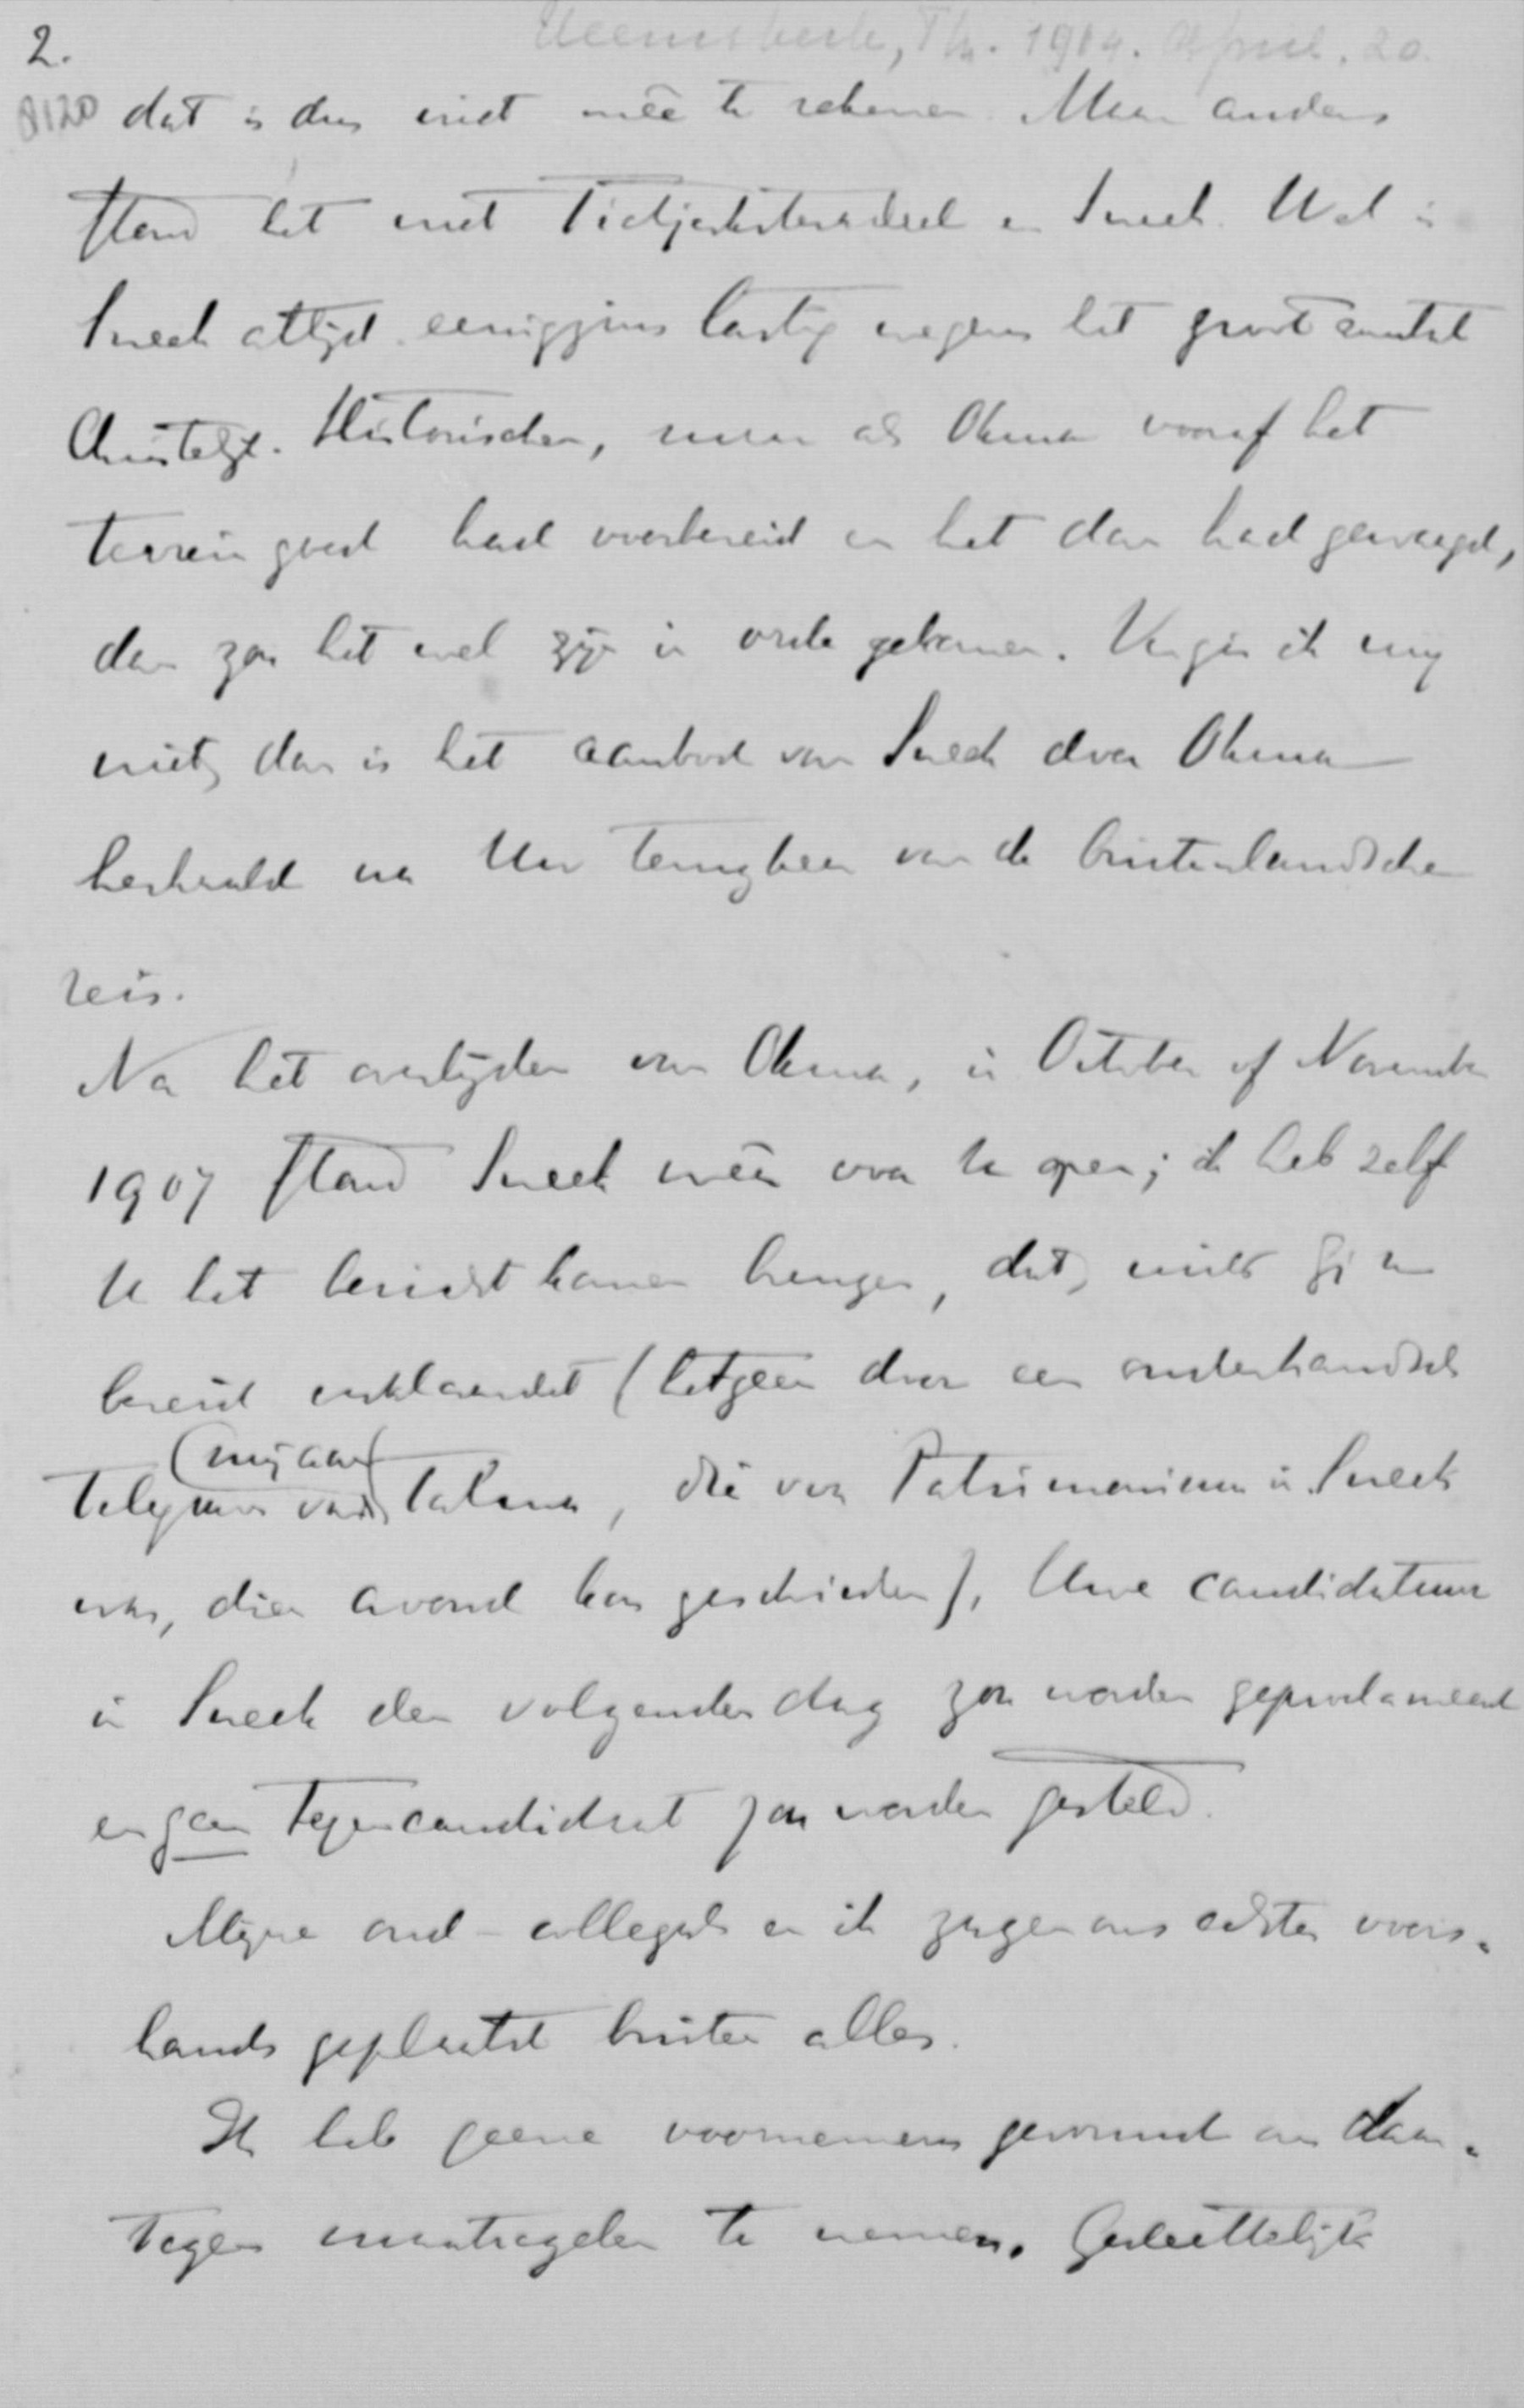 Heemskerk, Th. 1914. April. 20.
2.
8120 dat is dus niet meê te rekenen. Maar anders
stond het met Tietjerksteradeel en Sneek. Wel is
Sneek altijd eenigzins lastig wegens het groot aantal
Christelijk-Historischen, maar als Okma vooraf het
terrein goed had voorbereid en het dan had gewaagd,
dan zou het wel zijn in orde gekomen. Vergis ik mij
niet, dan is het aanbod van Sneek door Okma
herhaald na Uw terugkeer van de buitenlandsche
reis.
Na het overlijden van Okma, in October of November
1907 stond Sneek weêr voor U open; ik heb zelf
U het bericht komen brengen, dat, mits Gij U
bereid verklaardet (hetgeen door een onderhandsch
telegram van (mij aan) Talma, die voor Patrimonium in Sneek
was, dien avond kon geschieden), Uwe candidatuur
in Sneek den volgenden dag zou worden geproclameerd
en geen tegencandidaat zou worden gesteld.
Mijne oud-collega's en ik zagen ons echter voors-
hands geplaatst buiten alles.
Ik heb geene voornemens gevormd om daar-
tegen maatregelen te nemen. Gedeeltelijk